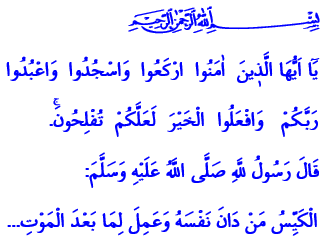 بِسْــــــــمِ اللّٰهِ الرَّحْمٰنِ الرَّحِيمِ
يَٓا اَيُّهَا الَّذٖينَ اٰمَنُوا ارْكَعُوا وَاسْجُدُوا وَاعْبُدُوا
رَبَّكُمْ وَافْعَلُوا الْخَيْرَ لَعَلَّكُمْ تُفْلِحُونَۚ.
قَالَ رَسُولُ للَّهِ صَلَّى اللَّهُ عَلَيْهِ وَسَلَّمَ:
الْكَيِّسُ مَنْ دَانَ نَفْسَهُ وَعَمِلَ لِمَا بَعْدَ الْمَوْتِ...